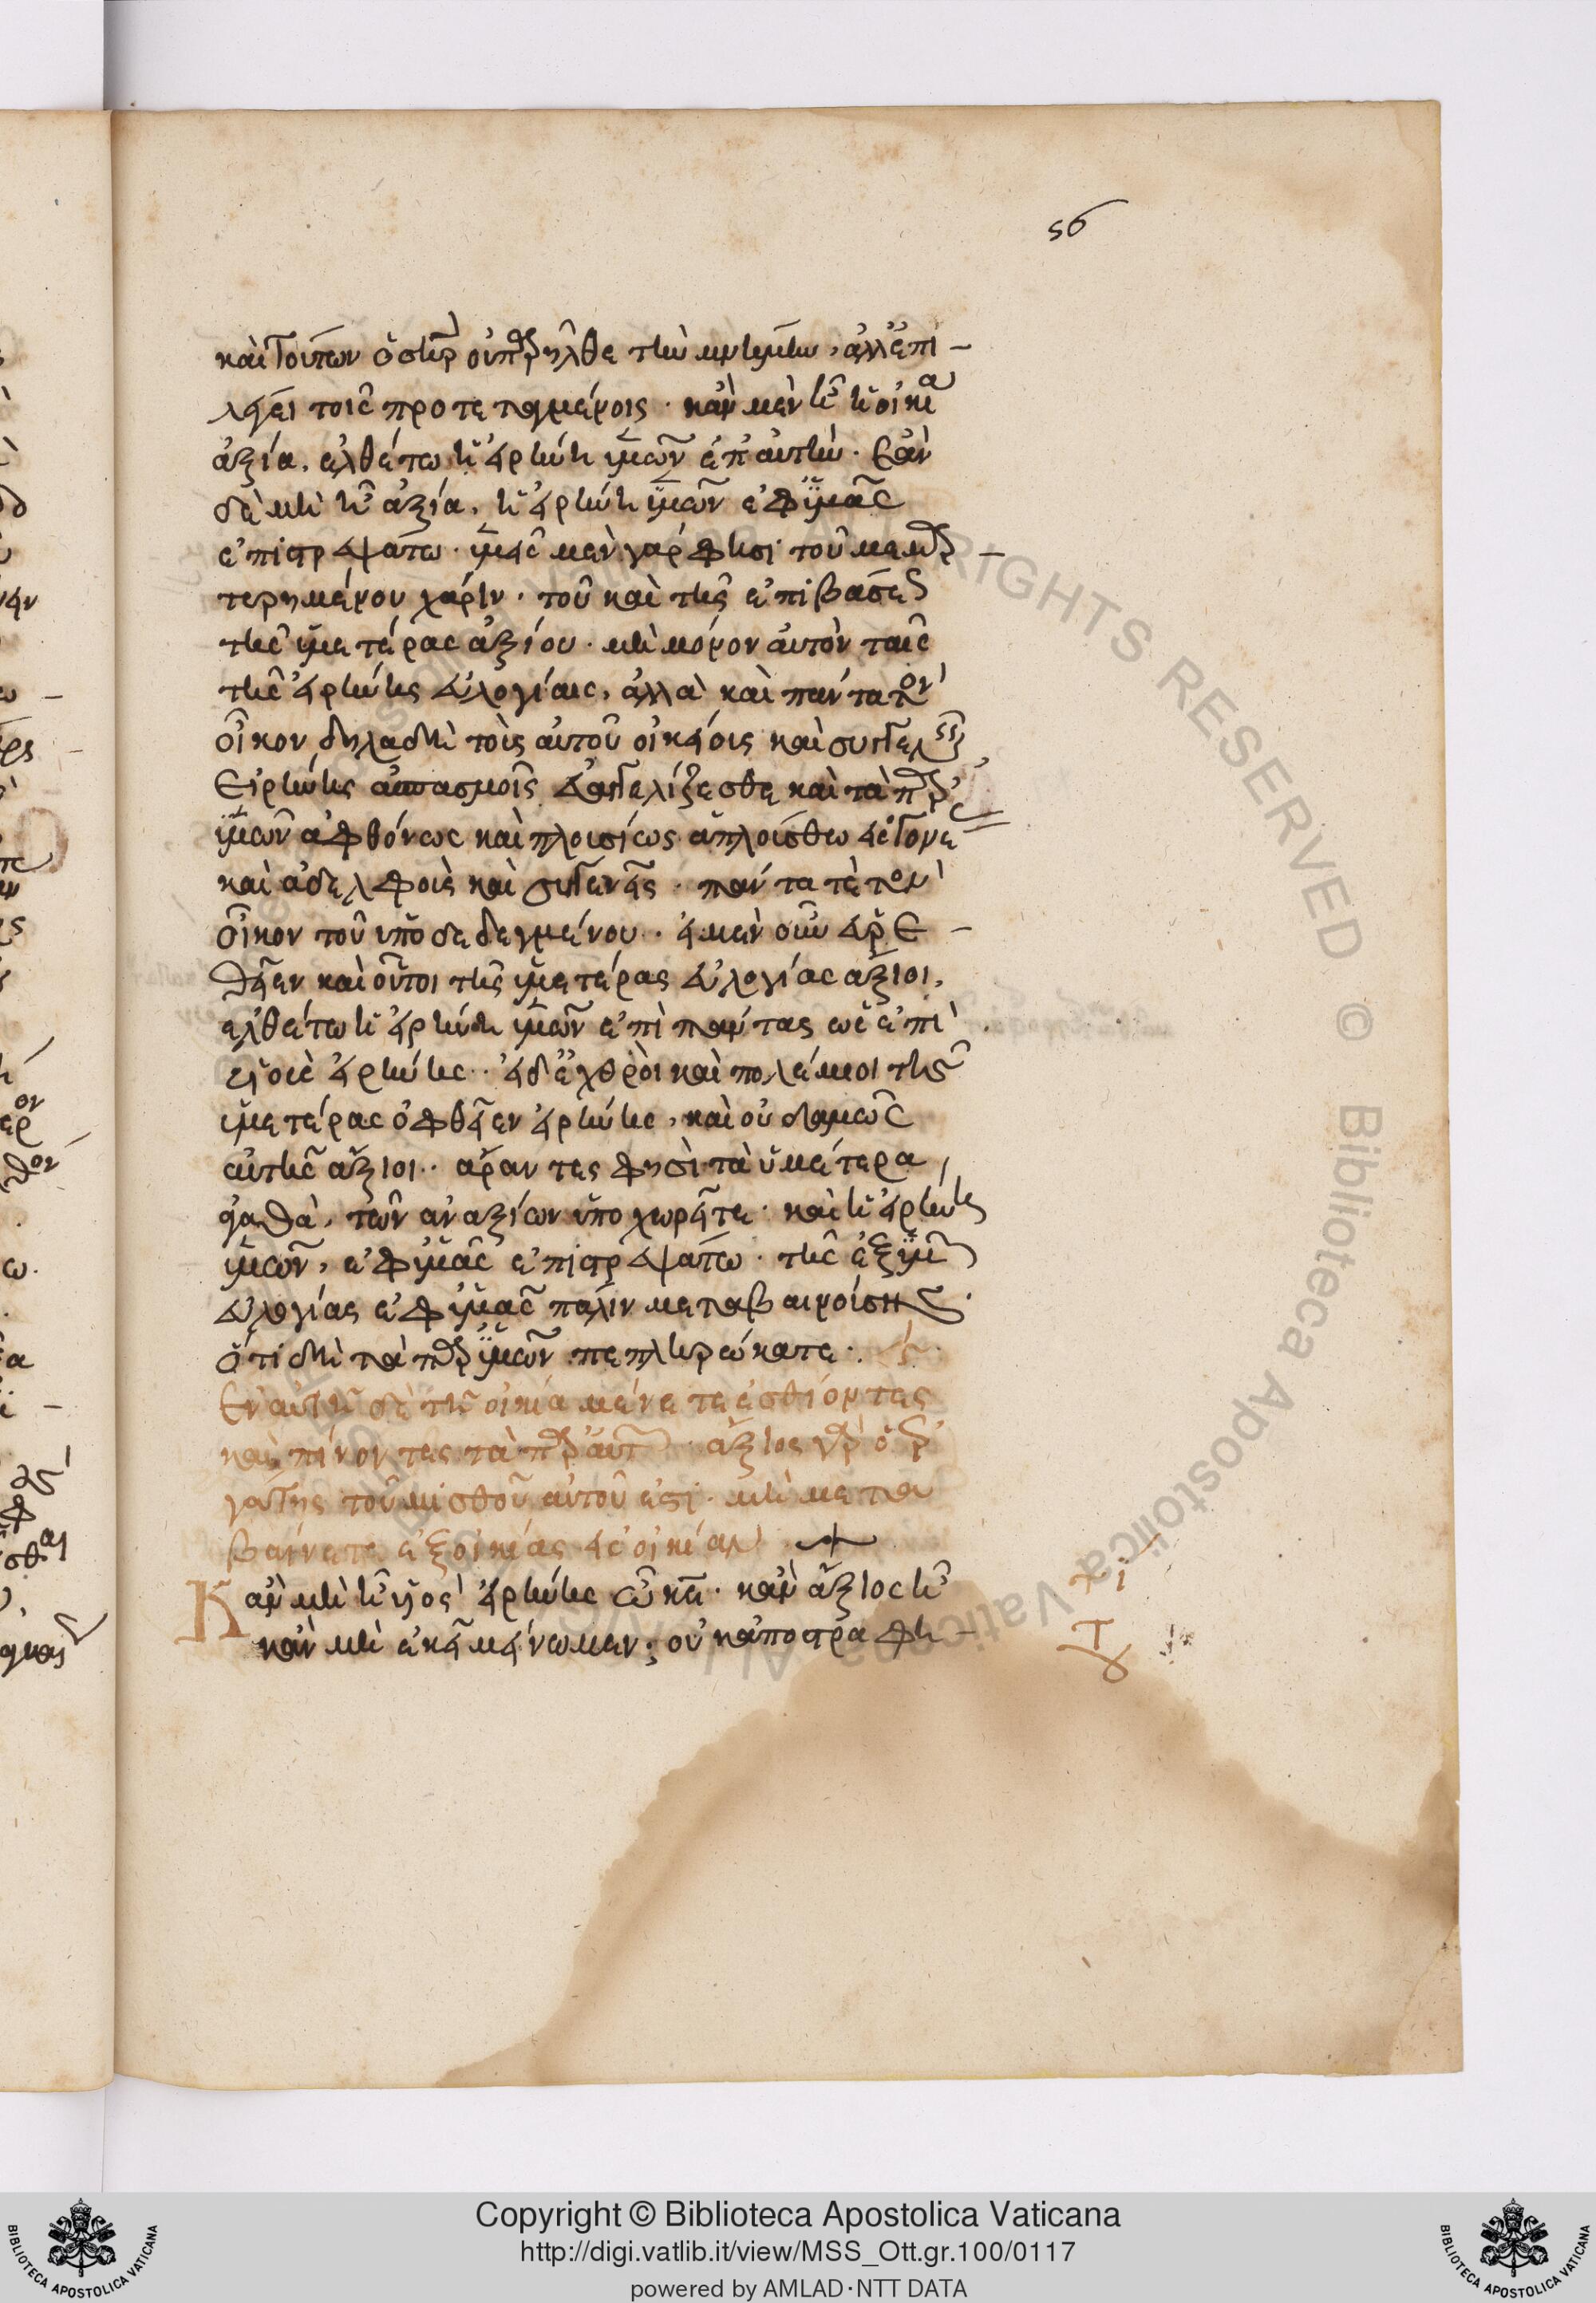 56
καὶ τούτων ὅστις οὐ παρῆλθε τὴν μνήμην, ἀλλ' ἐπι-
λέγει τοῖς προτεταγμένοις· κἂν μὲν ᾖ ἡ οἰκία
ἀξία, ἐλθέτω ἡ εἰρήνη ὑμῶν ἐπ' αὐτὴν· ἐὰν
δὲ μὴ ᾖ ἀξία, ἡ εἰρήνη ὑμῶν ἐφ' ὑμᾶς
ἐπιστρεψάτω· ὑμεῖς μὲν γάρ φησι τοῦ μεμαρ-
τυρημένου χάριν· τοῦ καὶ τῆς ἐπιβάσεως
τῆς ὑμετέρας ἀξίου· μὴ μόνον αὐτὸν ταῖς
τῆς εἰρήνης εὐλογίαις, ἀλλὰ καὶ πάντα τὸν
οἶκον δηλαδὴ τοῖς αὐτοῦ οἰκείοις καὶ συγγενέσι
εἰρήνης ἀσπασμοῖς εὐαγγελίζεσθε καὶ τὰ παρ'
ὑμῶν ἀφθόνως καὶ πλουσίως ἁπλούσθω
καὶ ἀδελφοῖς καὶ συγγενεῖς· πάντα τὲ τὸν
οἶκον τοῦ ὑποδεδεγμένου· εἰ μὲν οὖν εὑρε-
θεῖεν καὶ οὗτοι τῆς ὑμετέρας εὐλογίας ἄξιοι,
ἐλθέτω ἡ εἰρήνη ὑμῶν ἐπὶ πάντας ὡς ἐπὶ
υἱοὺς εἰρήνης· εἰ δ' ἐχθροὶ καὶ πολέμιοι τῆς
ὑμετέρας ὀφθεῖεν εἰρήνης, καὶ οὐδαμῶς
αὐτῆς ἄξιοι· ἄραντες φησὶ τὰ ὑμέτερα
ἀγαθὰ, τῶν ἀναξίων ὑποχωρεῖτε· καὶ ἡ εἰρήνη
ὑμῶν, ἐφ' ὑμᾶς ἐπιστρεψάτω· τῆς ἐξ ὑμῶν
εὐλογίας ἐφ' ὑμᾶς πάλιν μεταβαινούσης·
ὅτι δὴ τὰ παρ' ὑμῶν πεπληρώκατε·
Ἐν αὐτῇ δὲ τῇ οἰκία μένετε ἐσθίοντες
καὶ πίνοντες τὰ παρ' αὐτῶν· ἄξιος γὰρ ὁ ἐρ
γάτης τοῦ μισθοῦ αὐτοῦ ἐστι· μὴ μετα
βαίνετε ἐξ οἰκίας εἰς οἰκίαν
Κἂν μὴ ᾖ υἱὸς εἰρήνης ὦ κύριε· κἂν ἄξιος ᾖ
κἂν μὴ ἐκεῖ μείνωμεν; οὐκ ἀποστραφη-
Copyright © Biblioteca Apostolica Vaticana
http://digi.vatlib.it/view/MSS_Ott.gr.100/0117
powered by AMLAD·NTT DATA